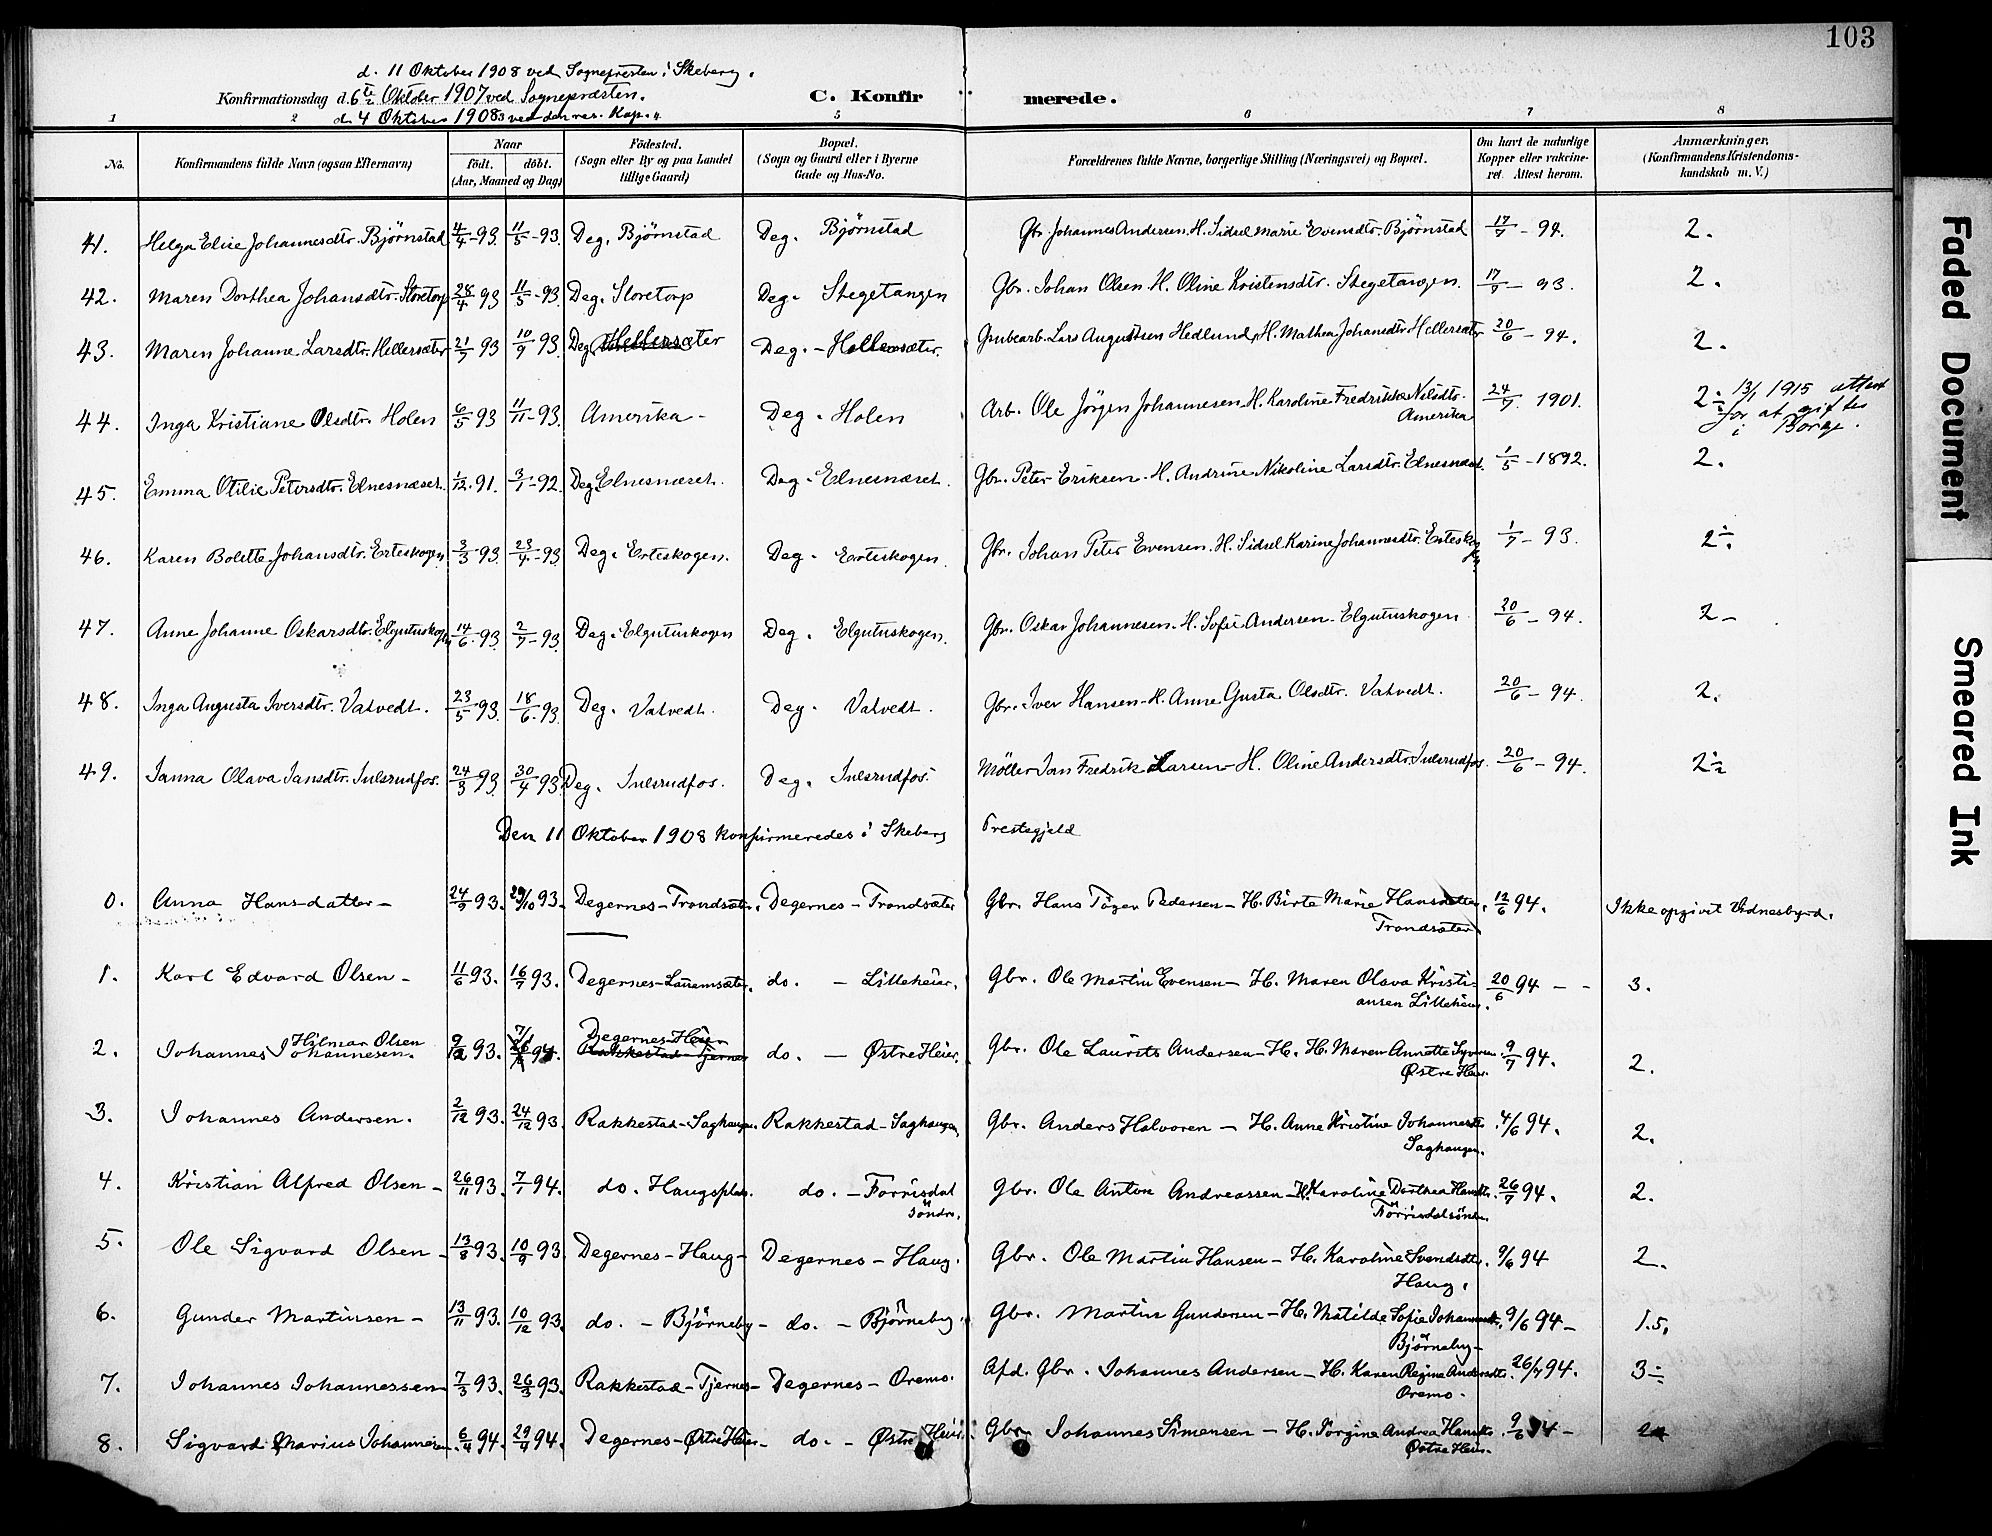 103
d. 11 Oktober 1908 ved Sognepresten i Skeberg.
Konfirmationsdag d. 6te Oktober 1907 ved Sognepræsten.
d. 4 Oktober 1908 ved den res. Kap.
C. Konfirmerede.
1 2 3 4 5 6 7 8
No. Konfirmandens fulde Navn (ogsaa Efternavn) Naar født. døbt. (Aar, Maaned og Dag) Fødested. (Sogn eller By og paa Landet tillige Gaard) Bopæl. (Sogn og Gaard eller i Byerne Gade og Hus-No. Forældrenes fulde Navne, borgerlige Stilling (Næringsvei) og Bopæl. Om havt de naturlige Kopper eller vakcineret. Attest herom. Anmærkninger, (Konfirmandens Kristendomskundskab m. V.)
41. Helga Elise Johannesdtr. Bjørnstad 4/4-93. 11/5-93. Deg. Bjørnstad Deg. Bjørnstad Gbr. Johannes Andersen. H. Sidsel Marie Evensdtr. Bjørnstad 17/7-94. 2.
42. Maren Dorthea Johansdtr. Storetorp 28/4 93 11/5-93. Deg. Storetorp Deg. Stegetangen Gbr. Johan Olsen. H. Oline Kristensdtr. Stegetangen. 17/7-93. 2.
43. Maren Johanne Larsdtr. Hellersæter 21/7 93 10/9 93. Deg. Hellersæter Deg. - Hellersæter. Grubearb. Lars Augustsen Hedlund, H. Mathea Johansdtr. Hellersæter 20/6-94. 2.
44. Inga Kristiane Olsdtr. Holen 6/5 93 11/11-93. Amerika - Deg. Holen Arb. Ole Jörgen Johannesen. H. Karoline Fredrikke Nilsdtr. Amerika 24/7. 1901. 2÷ 13/1 1915 attest for at giftes i Borge.
45. Emma Otilie Petersdtr. Elnesnæset. 1/12.91. 3/1-92. Deg. Elnesnæset. Deg. Elnesnæset. Gbr. Peter Eriksen. H. Andrine Nikoline Larsdtr. Elnesnæset. 1/5-1892. 2.
46. Karen Bolette Johansdtr. Erteskogen 3/3 93. 23/4-93. Deg. Erteskogen. Deg. Erteskogen. Gbr. Johan Peter Evensen. H. Sidsel Karine Johannesdtr. Erteskogen 1/7-93. 2÷
47. Anne Johanne Oskarsdtr. Elgutuskogen 14/6.93. 2/7-93. Deg. Elgutuskogen Deg. Elgutuskogen. Gbr. Oskar Johannesen. H. Sofie Andersen. Elgutuskogen 20/6-94. 2-
48. Inga Augusta Iversdtr. Vatvedt. 23/5 93. 18/6.93. Deg. Vatvedt. Deg. Vatvedt. Gbr. Iver Hansen - H. Anne Gusta Olsdtr. Vatvedt. 20/6-94. 2.
49. Janna Olava Jansdtr. Julsrudfos. 24/3 93. 30/4 93. Deg. Julsrudfos. Deg. Julsrudfos. Møller Jan Fredrik Larsen - H. Oline Andersdtr. Julsrudfos. 20/6-94. 2÷
Den 11 Oktober 1908 konfirmeredes i Skeberg Prestegjeld
0. Anna Hansdatter - 24/9 93. 29/10 93. Degernes - Trondsæter. Degernes - Trondsæter Gbr. Hans Pedersen - H. Birte Marie Hansdatter. Trondsæter 12/6 94. Ikke opgivet Vidnesbyrd.
1. Karl Edvard Olsen - 11/6 93. 16/7 93. Degernes - do. - Lilleheier. Gbr. Ole Martin Evensen - H. Maren Olava Kristiansen Lilleheier. 20/6 94 - - 3.
2. Johannes Hilmar Olsen Johannesen. 9/12 93. 94. Degernes - Heier do. - Østre Heier. Gbr. Ole Laurits Andersen - H. H. Maren Annette Østre Heier. 9/7 94. 2.
3. Johannes Andersen. 2/12 93. 24/12 93. Rakkestad - Saghaugen. Rakkestad - Saghaugen. Gbr. Anders Halvorsen - H. Anne Kristine Johannesdtr. Saghaugen. 4/6 94. 2.
4. Kristian Alfred Olsen - 26/11 93. 7/1 94. do. Haugsplas. do. - Förrisdal söndre. Gbr. Ole Anton Andreassen - H. Karoline Dorthea Hansdtr. Förrisdal söndre. 26/7 94. 2.
5. Ole Sigvard Olsen - 13/8 93. 10/9 93. Degernes - Haug - Degernes - Haug. Gbr. Ole Martin Hansen - H. Karoline Svendsdtr. Haug. 9/6 94 2.
6. Gunder Martinsen - 13/11 93. 10/12 93. do. - Björneby - do. - Björneby. Gbr. Martin Gundersen - H. Matilde Sofie Johannesdtr. Björneby - 9/6 94 - 1.5.
7. Johannes Johannessen 7/3 93. 26/3 93. Rakkestad - Tjernes - Degernes - Oremo. Afd. Gbr. Johannes Andersen - H. Karen Regine Andersdtr. Oremo. 26/7 94. 3÷
8. Sigvard Marius Johannesen. 6/4 94. 29/4 94. Degernes - Østre Heier - do. - Østre Heier. Gbr. Johannes Simensen - H. Jørgine Andrea Hansdtr. Østre Heier. 9/6 94 -
Faded Document
Smeared Ink